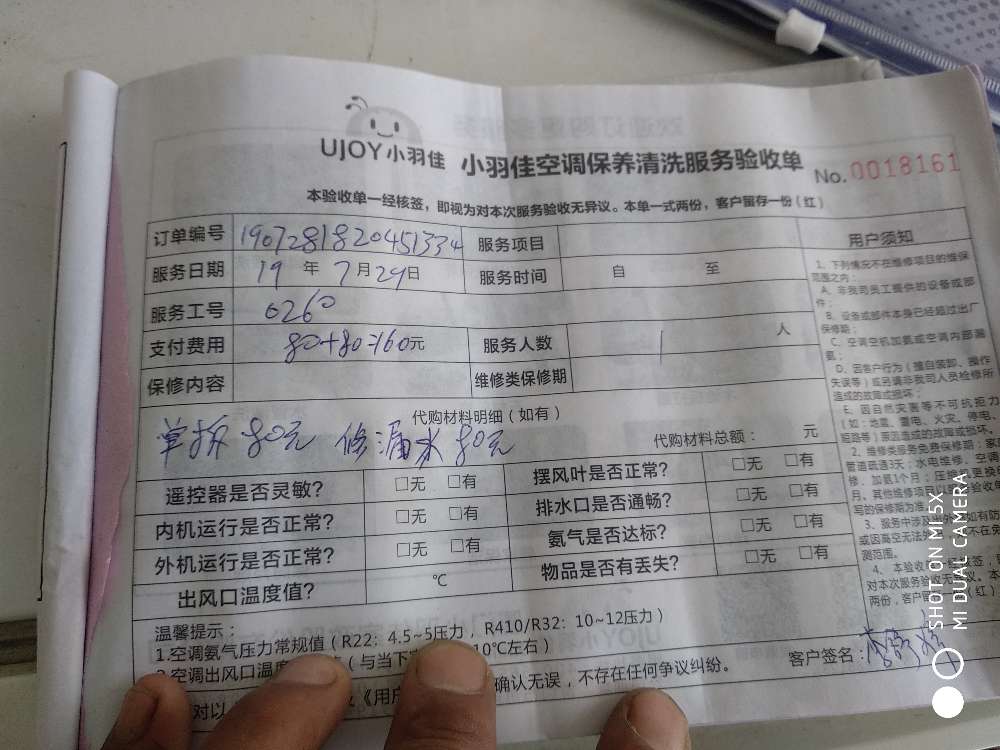 UJOY小羽佳 小羽佳空调保养清洗服务验收单 No. 0018161
本验收单一经核签，即视为对本次服务验收无异议。本单一式两份，客户留存一份（红）
订单编号 1907281820451334 服务项目
服务日期 19 年 7 月 29 日 服务时间 自 至
服务工号 0260
支付费用 80+80=160元 服务人数 1 人
保修内容 维修类保修期
代购材料明细（如有）
单拆80元 修漏水80元
代购材料总额： 元
遥控器是否灵敏? □无 □有 摆风叶是否正常? □无 □有
内机运行是否正常? □无 □有 排水口是否通畅? □无 □有
外机运行是否正常? □无 □有 氨气是否达标? □无 □有
出风口温度值? ℃ 物品是否有丢失? □无 □有
温馨提示：
1.空调氨气压力常规值（R22：4.5~5压力，R410/R32：10~12压力）
2.空调出风口温度 （与当下 10℃左右）
对以 《用户 确认无误，不存在任何争议纠纷。
客户签名：
用户知
1、下列情况不在维修项目的维保
范围之内：
A、非我司员工提供的设备或部
件；
B、设备或部件本身已经超过出厂
保修期；
C、空调空机加氨或空调内部漏
氨；
D、因客户行为（擅自装卸、操作
失误等）或因请非我司人员检修所
造成的故障或损坏；
E、因自然灾害等不可抗拒力
（如：地震、雷电、火灾、停电、
短路等）原因造成的故障或损坏。
2、维修类服务免费保修期：家
管道疏通3天；水电维修、空调
修、加氨1个月；压缩
月。其他维修项目
写的保修期为准
3、服务中涉及
或因高空无法
测范围。
4、本验收 经核签，
对本次服务验收无 议。本
两份，客户留 （红）
SHOT ON MI 5X
MI DUAL CAMERA